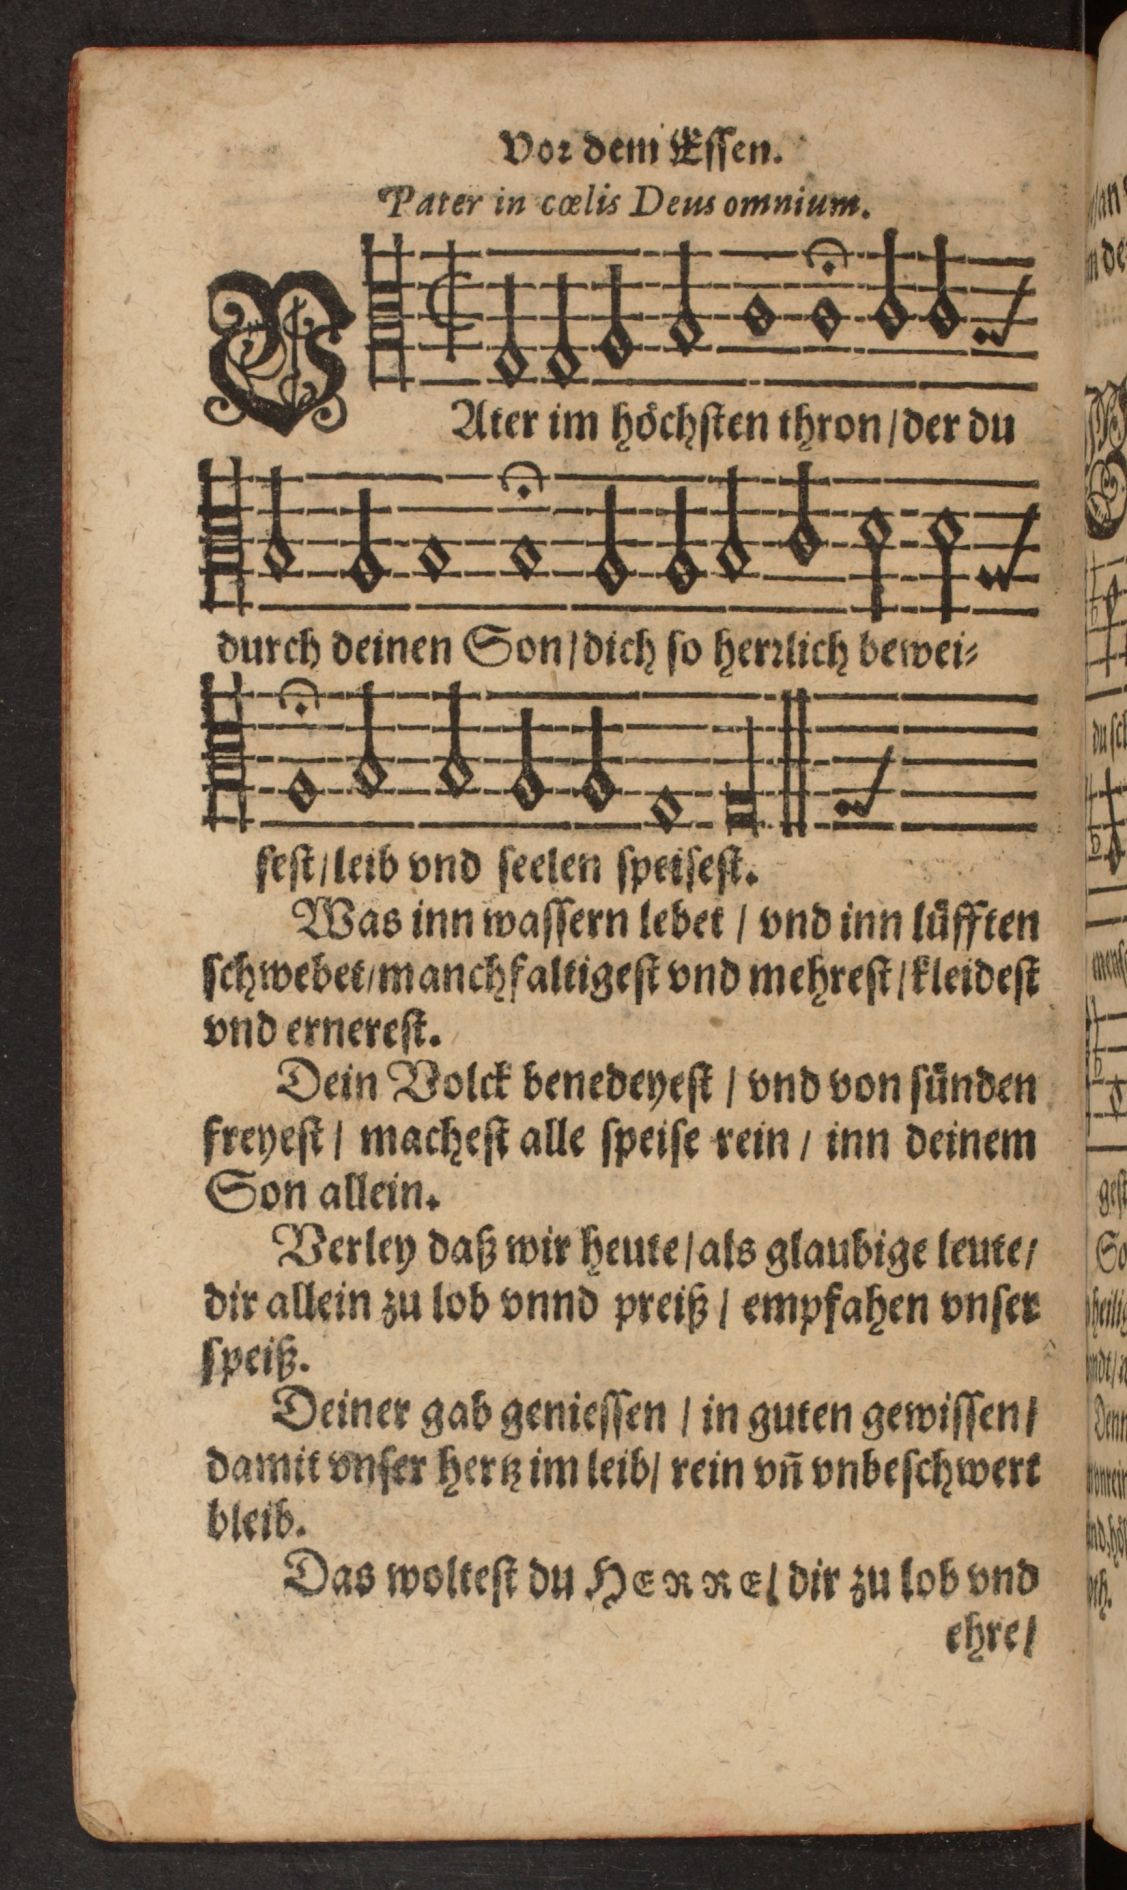 Vor dem Essen.
Pater in cœlis Deus omnium.
VAter im höchsten thron / der du
durch deinen Son / dich so herrlich bewei⸗
sest / leib vnd seelen speisest.
Was inn wassern lebet / vnd inn lüfften
schwebet / manchfaltigest vnd mehrest / kleidest
vnd ernerest.
Dein Volck benedeyest / vnd von sünden
freyest / machest alle speise rein / inn deinem
Son allein.
Verley daß wir heute / als glaubige leute /
dir allein zu lob vnnd preiß / empfahen vnser
speiß.
Deiner gab geniessen / in guten gewissen /
damit vnser hertz im leib / rein vn̄ vnbeschwert
bleib.
Das woltest du HERRE / dir zu lob vnd
ehre /